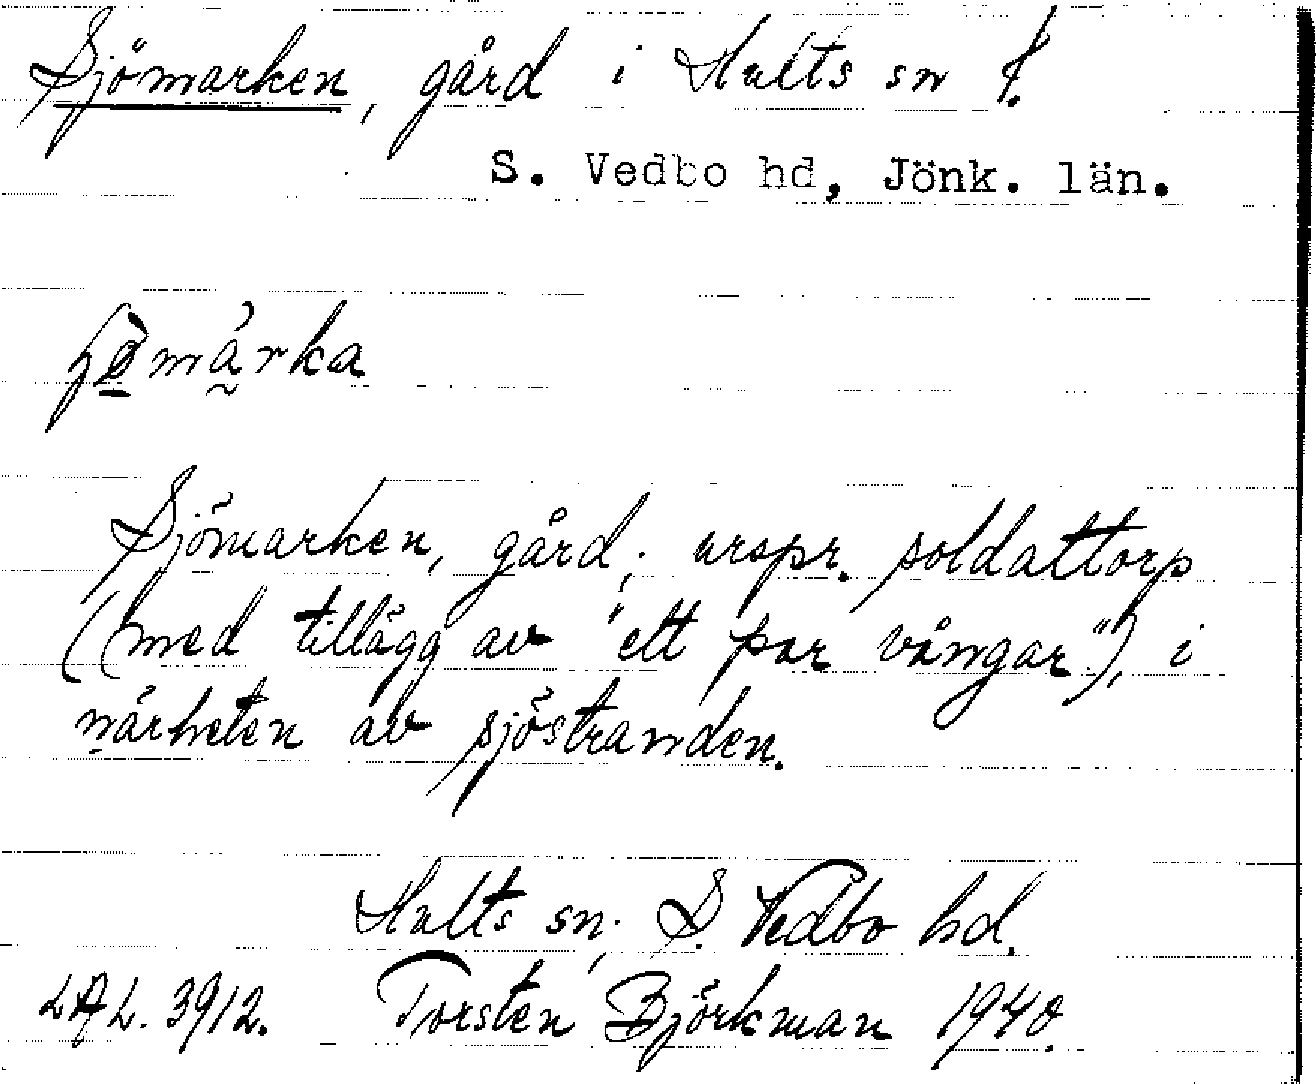 Sjömarken, gård i Hults sn
S. Vedbo hd, Jönk. län.
Sjömarken, gård, urspr. soldattorp
(med tillägg av "ett par vångar"), i
närheten av sjöstranden.
Hults sn, S. Vedbo hd.
LAL. 3912. Torsten Björkman 1940.